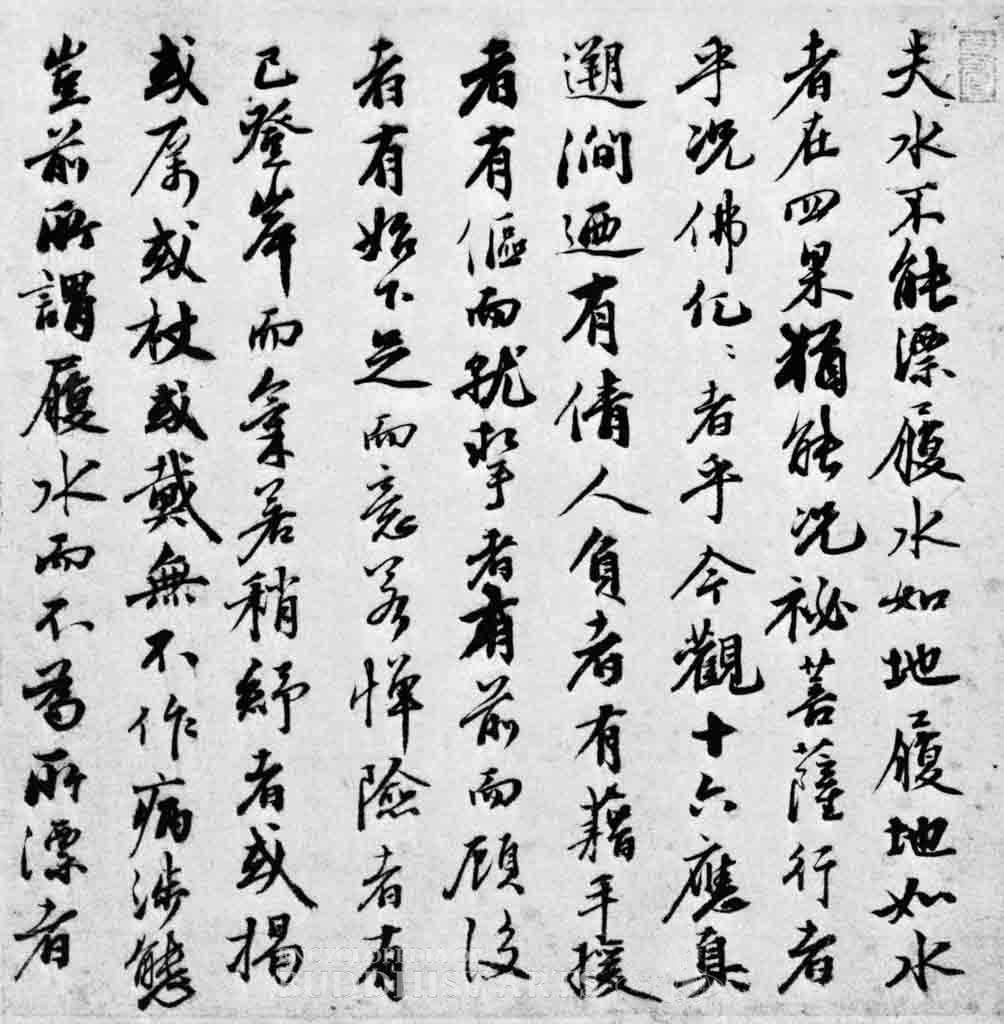 夫水不能漂履水如地履地如水
者在四果猶能況祕菩薩行者
乎況佛仡〻者乎今觀十六應真
遡澗迺有倩人負者有藉手援
者有傴而就挐者有前而顧後
者有始下足而意若憚險者有
已登岸而氣若稍紓者或揭
或厲或杖或戴無不作病涉態
豈前所謂履水而不為所漂者